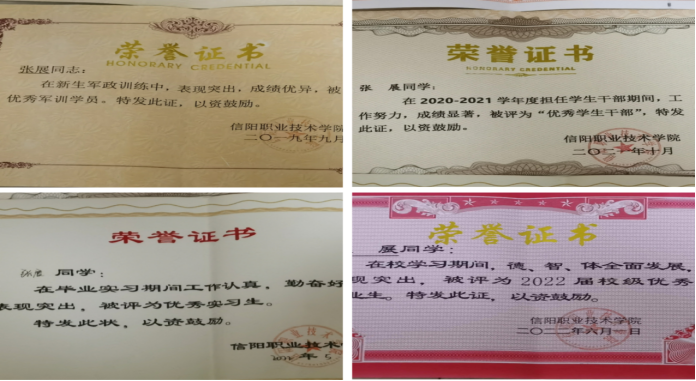 荣誉证书
HONORARY CREDENTIAL
张展同志：
在新生军政训练中，表现突出，成绩优异，被
优秀军训学员。特发此证，以资鼓励。
信阳职业技术学院
二〇一九年九月
荣誉证书
HONORARY CREDENTIAL
张 展同学：
在 2020-2021 学年度担任学生干部期间，工
作努力，成绩显著，被评为“优秀学生干部”，特发
此证，以资鼓励。
信阳职业技术学院
二〇二一年十月
荣誉证书
张展 同学：
在毕业实习期间工作认真，勤奋好
表现突出，被评为优秀实习生。
特发此状，以资鼓励。
信阳职业技术
年 5
荣誉证书
展同学：
在校学习期间，德、智、体全面发展，
现突出，被评为 2022 届校级优秀
业生。特发此证，以资鼓励。
信阳职业技术学院
二〇二二年六月一日